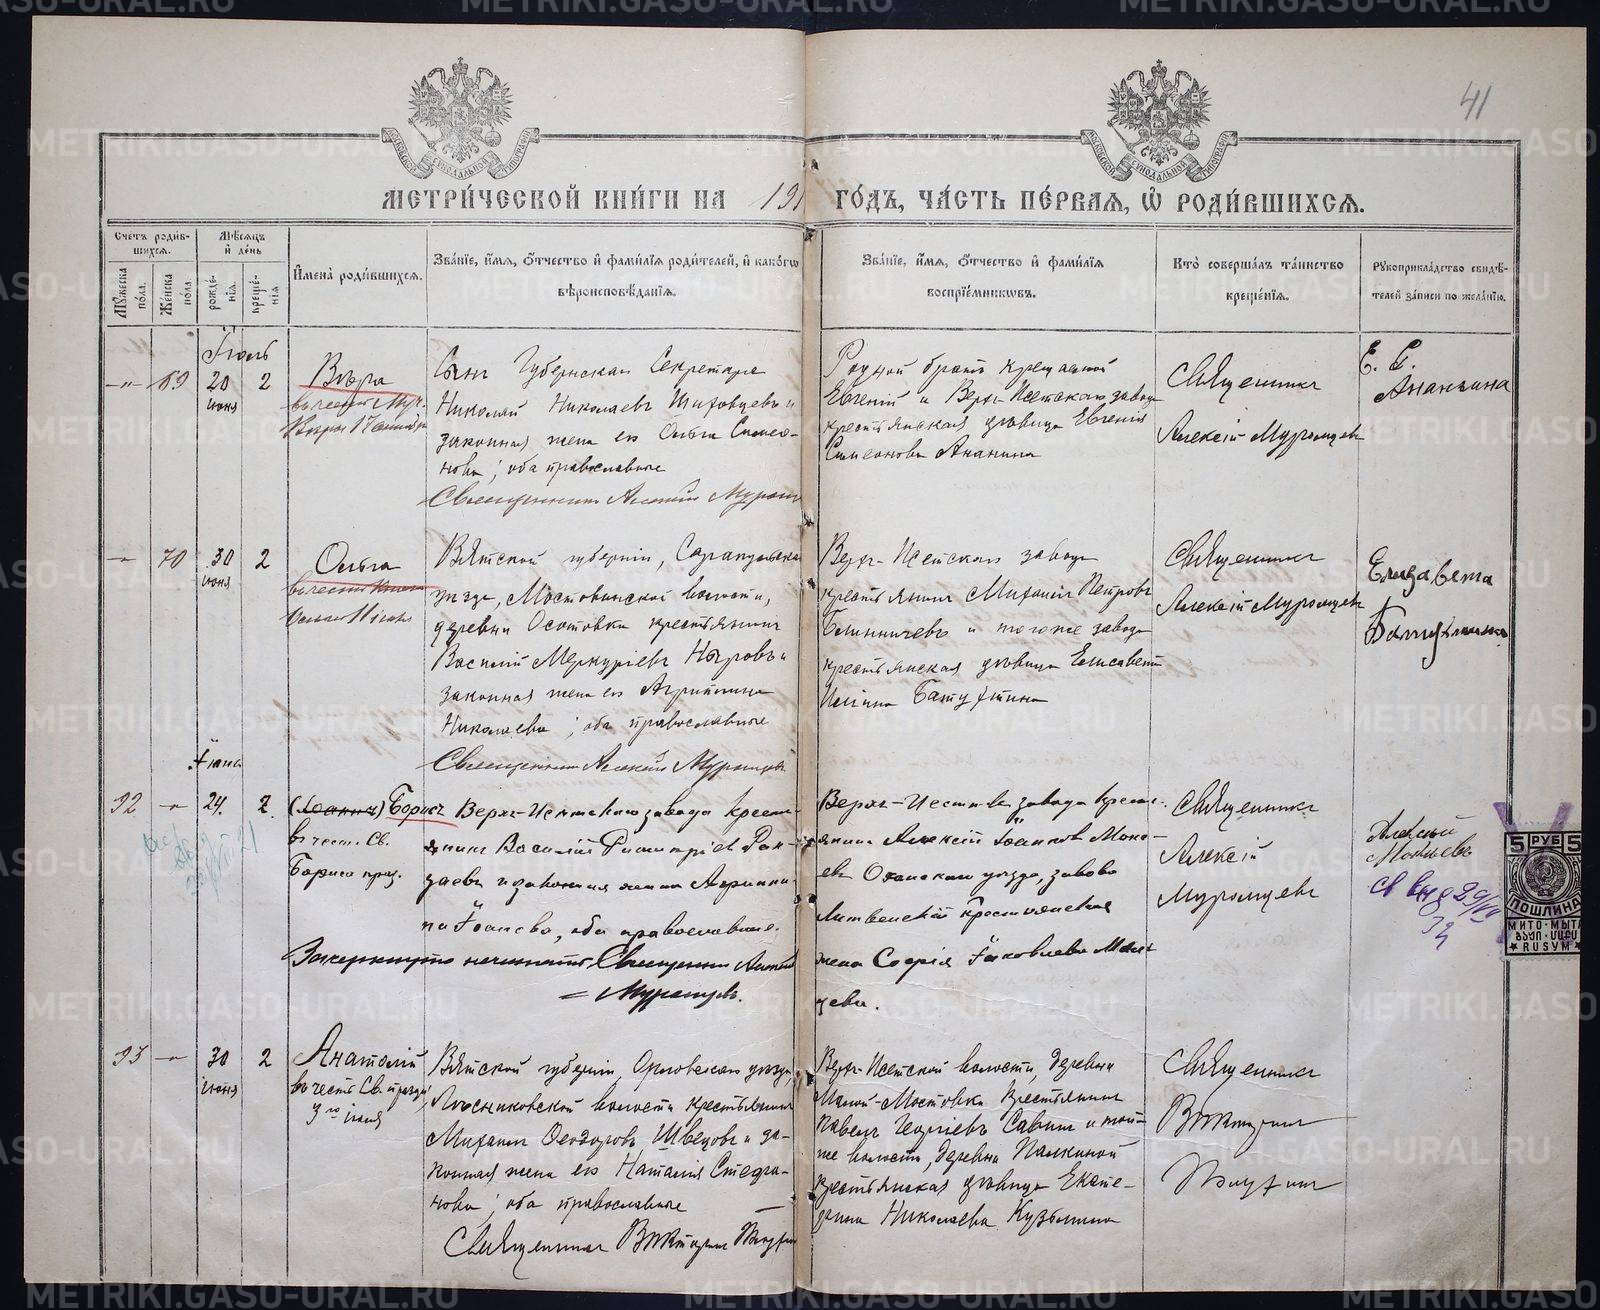 41
МЕТРИ́ЧЕСКОЙ КНИ́ГИ НА 191
ГО́ДЪ, ЧА́СТЬ ПЕ́РВАЯ, Ѡ҆ РОДИ́ВШИХСЯ.
Счетъ роди́вшихся.
Мѣсяцъ и день
Мꙋжеска пола.
Женска пола.
рожденїя.
крещенїя.
Имена роди́вшихся.
Зва́нїе, и́мя, ѻ҆́тчество и҆ фами́лїя роди́телей, и҆ како́гѡ
вѣроисповѣ́данїя.
Зва́нїе, и́мя, ѻ҆́тчество и҆ фами́лїя
воспрїе́мникѡвъ.
Кто̀ соверша́лъ та́инство
креще́нїя.
Рꙋкоприкла́дство свидѣ́-
телей за́писи по жела́нїю.
Іюль
69
20
іюня
2
Вѣра
въ честь Муч.
Вѣры 17
Сынъ Губернскаго Секретаря
Николай Николаевъ и
законная жена его Ольга Симео-
нова; оба православные
Священникъ Алексій Муромцевъ
Родной братъ крещаемой
Евгеній и Верхъ-Исетскаго завода
крестьянская дѣвица Евгенія
Симеонова Ананьина
Священникъ
Алексій Муромцевъ
Е. С.
Ананьина
70
30
іюня
2
Ольга
въ честь
Вятской губерніи, Сарапульскаго
уѣзда, Мостовинской волости,
деревни Осотовки крестьянинъ
Василій Меркуріевъ и
законная жена его Агриппина
Николаева; оба православные
Священникъ Алексій Муромцевъ
Верхъ-Исетскаго завода
крестьянинъ Михаилъ Петровъ
Блинничевъ и тогоже завода
крестьянская дѣвица Елисавета
Батухтина
Священникъ
Алексій Муромцевъ
Елизавета
Батухтина
Іюнь
92
24.
2.
(Іоаннъ) Борисъ
въ честь Св.
Бориса
Верхъ-Исетскаго завода крестья-
нинъ Василій Димитріевъ
и законная жена Агриппи-
на оба православные.
Зачеркнуто не читать Священникъ Алексій
Муромцевъ.
Верхъ-Исетскаго завода кресть-
янинъ Алексій Іоанновъ Моке-
евъ Оханскаго уѣзда, завода
крестьянская
жена Софія Іаковлева
Священникъ
Алексій
Муромцевъ
Алексѣй
5 РУБ 5
ПОШЛИНА
RUSYM
93
30
іюня
2
Анатолій
въ честь Св. празд.
3го іюля
Вятской губерніи, Орловскаго уѣзда,
волости крестьянинъ
Михаилъ Ѳеодоровъ Швецовъ и за-
конная жена его Наталія Стефа-
нова; оба православные
Священникъ Викторинъ
Верхъ-Исетской волости, деревни
Малой-Мостовки крестьянинъ
Павелъ Георгіевъ Савинъ и той-
же волости, деревни Палкиной
крестьянская дѣвица Екате-
рина Николаева Кузьмина
Священникъ
Викторинъ
METRIKI.GASO-URAL.RU